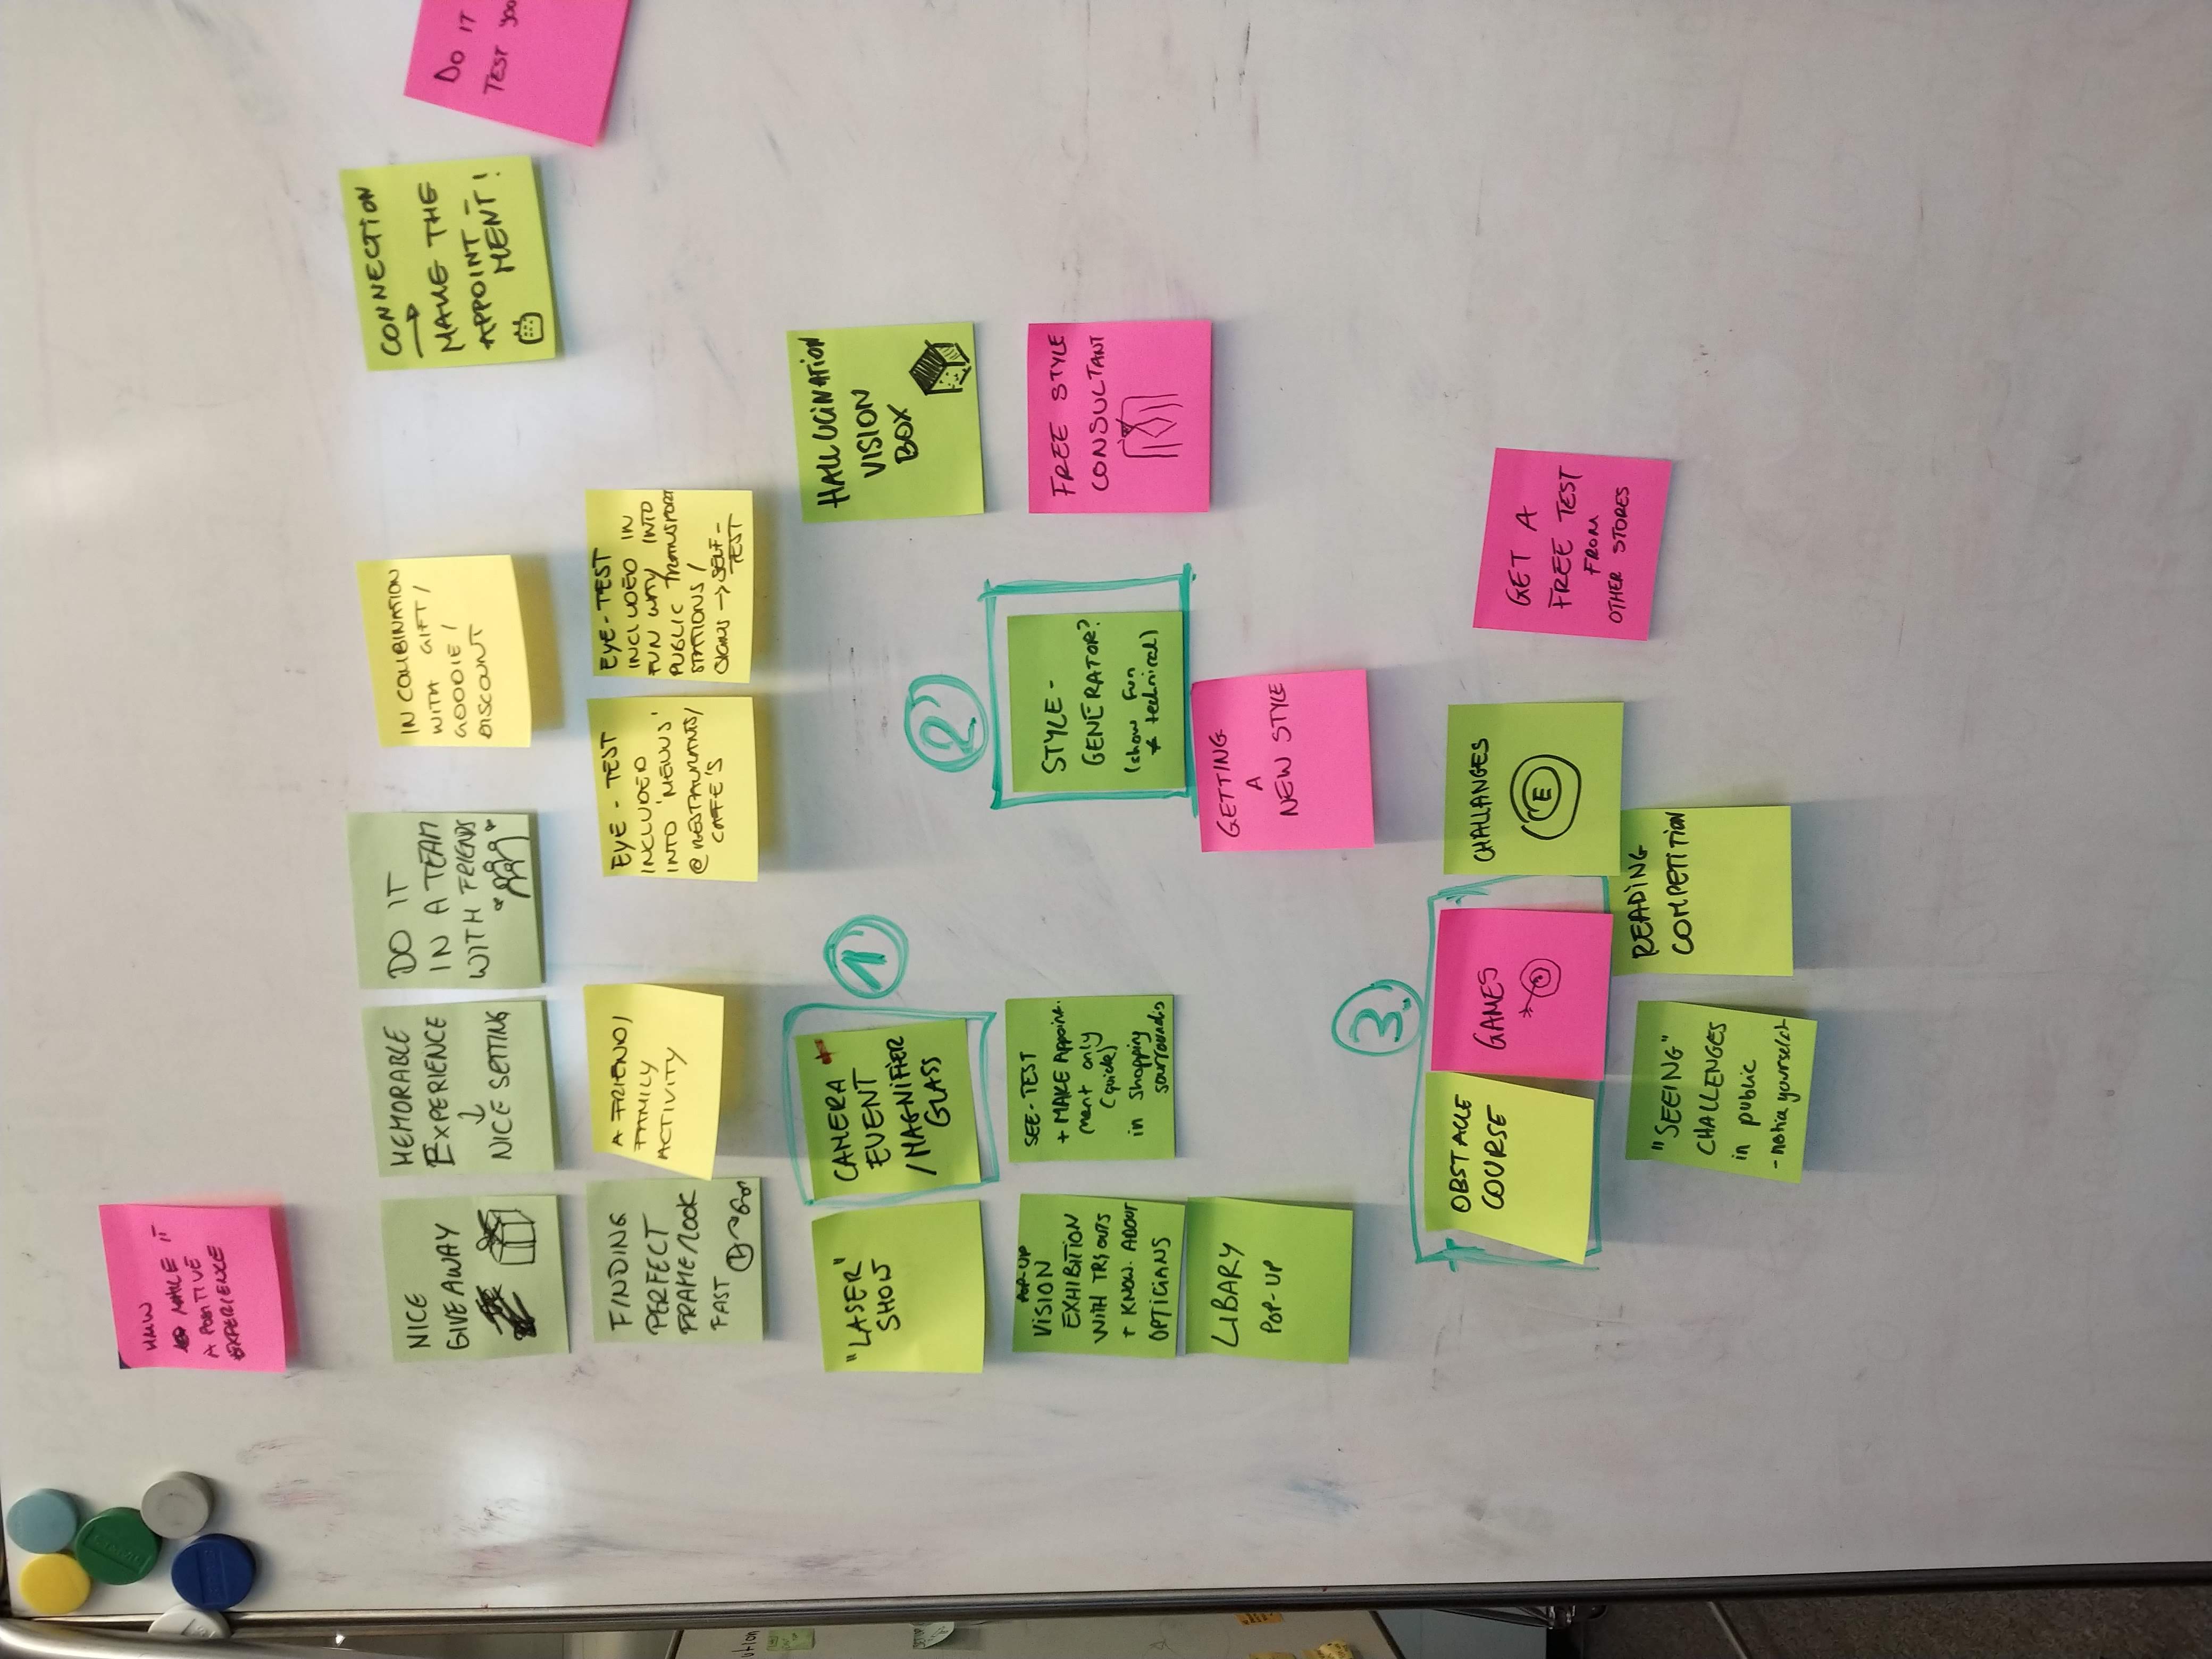 HMW
MAKE IT
A POSITIVE
EXPERIENCE
NICE
GIVE AWAY
MEMORABLE
EXPERIENCE
↓
NICE SETTING
DO IT
IN A TEAM
WITH FRIENDS
IN COMBINATION
WITH GIFT /
GOODIE /
DISCOUNT
CONNECTION
→
MAKE THE
APPOINT -
MENT !
DO IT
TEST YOU
FINDING
PERFECT
FRAME/LOOK
FAST
A FRIEND/
FAMILY
ACTIVITY
EYE - TEST
INCLUDED
INTO 'MENUS'
@ RESTAURANTS/
CAFE'S
EYE-TEST
INCLUDED IN
FUN WAY INTO
PUBLIC TRANSPORT
STATIONS /
SIGNS → SELF-
TEST
"LASER"
SHOW
CAMERA +
EVENT
/MAGNIFIER
GLASS
1
HALLUCINATION
VISION
BOX
2
POP-UP
VISION
EXHIBITION
WITH TRY OUTS
+ KNOW. ABOUT
OPTICIANS
SEE-TEST
+ MAKE Appoint.
ment only
(quick)
in shopping
STYLE-
GENERATOR?
(show fun
≠ technical)
FREE STYLE
CONSULTANT
LIBARY
POP-UP
GETTING
A
NEW STYLE
3.
OBSTACLE
COURSE
GAMES
CHALLANGES
E
GET A
FREE TEST
FROM
OTHER STORES
"SEEING"
CHALLENGES
in public
- notice yourself
READING
COMPETITION